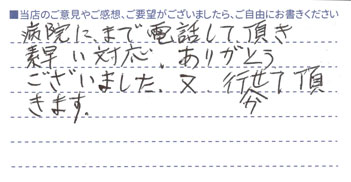 ■当店のご意見やご感想、ご要望がございましたら、ご自由にお書きください
病院に、まで電話して頂き
素早い対応、ありがとう
ございました。又、行せて頂
きます。